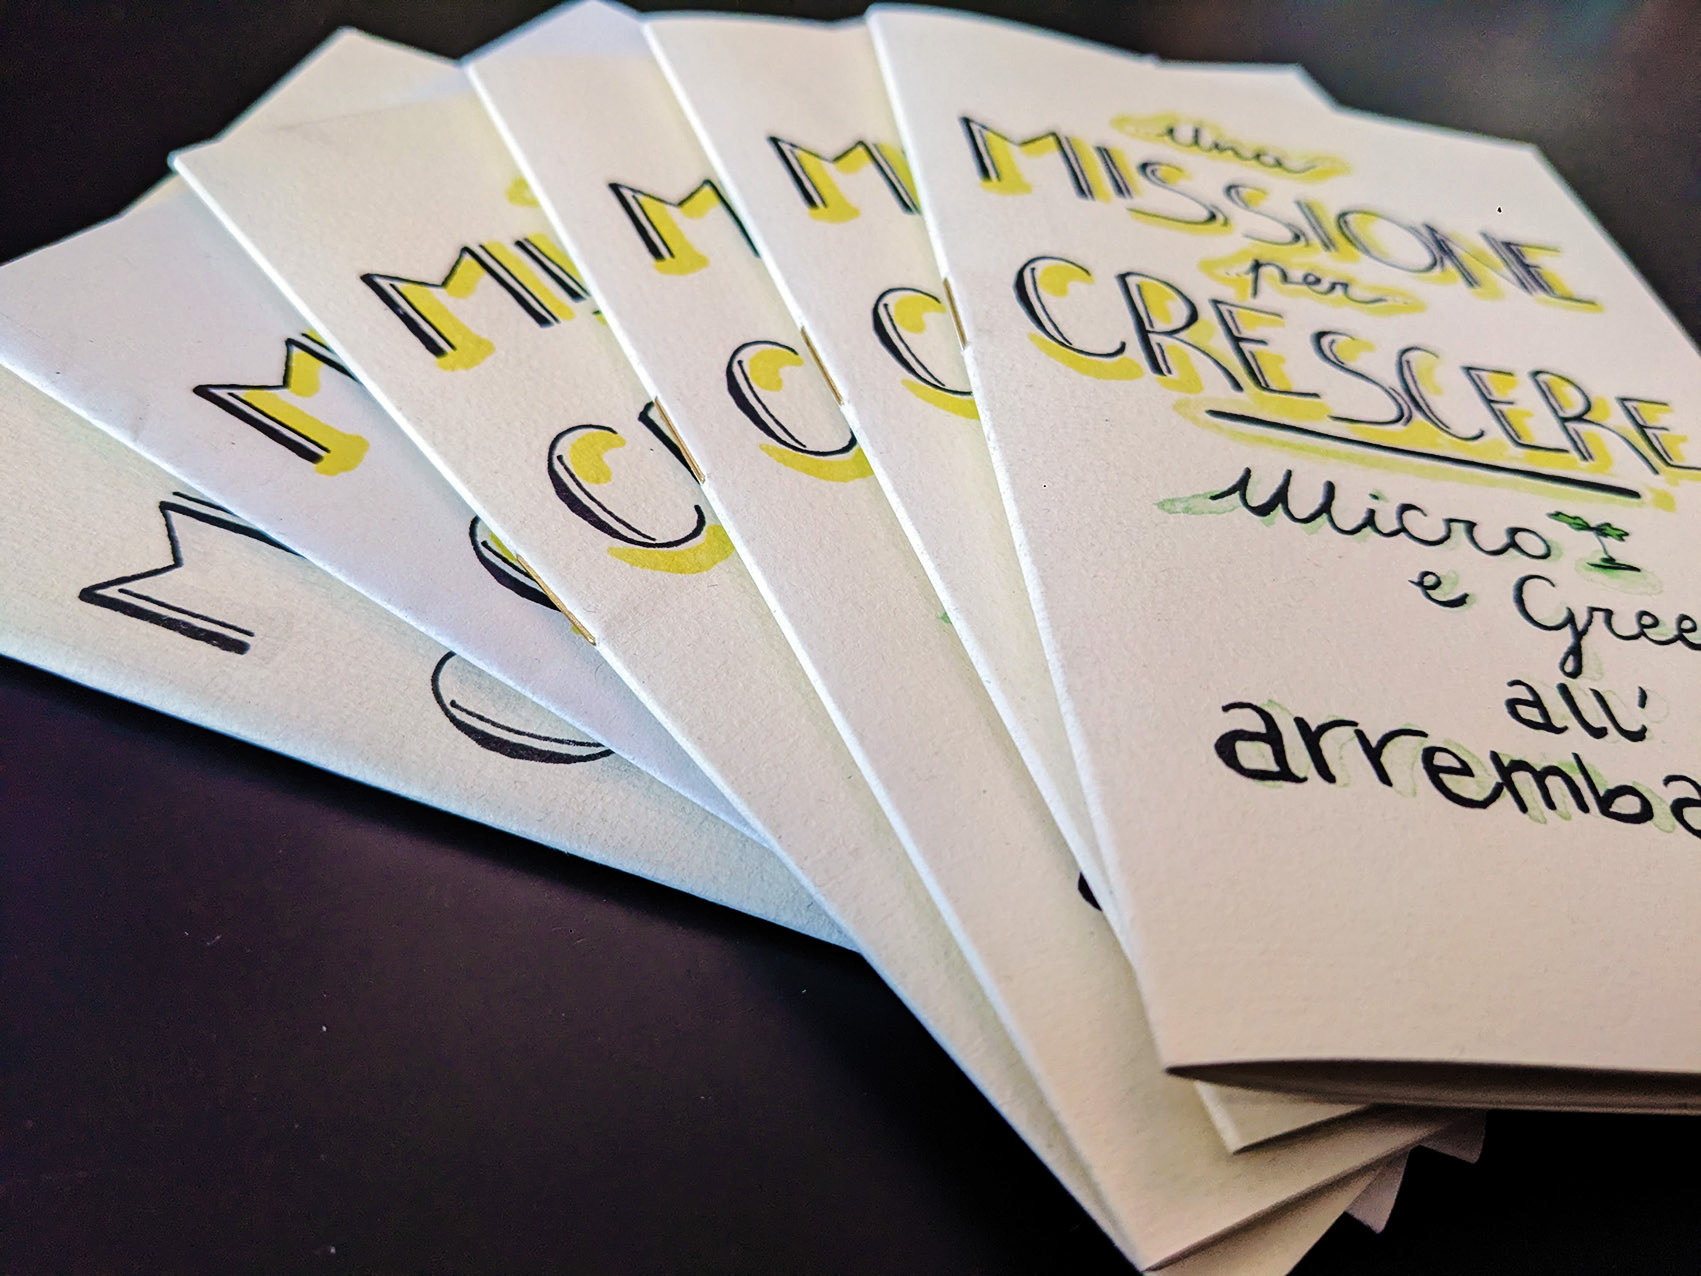 una
MISSIONE
per
CRESCERE
Micro
e Gree
all'
arremba
M
C
M
C
MI
C
M
M